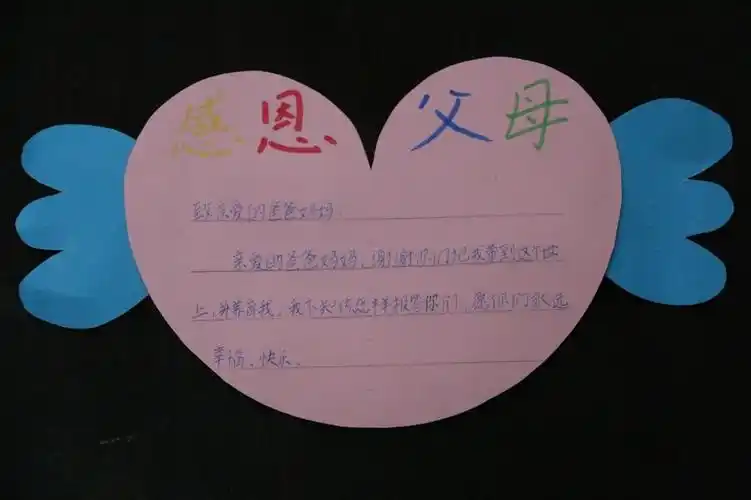 感恩 父母
致亲爱的爸爸妈妈：
亲爱的爸爸妈妈，谢谢你们把我带到这个世
上，并养育我，我不知该怎样报答你们，愿你们永远
幸福、快乐。